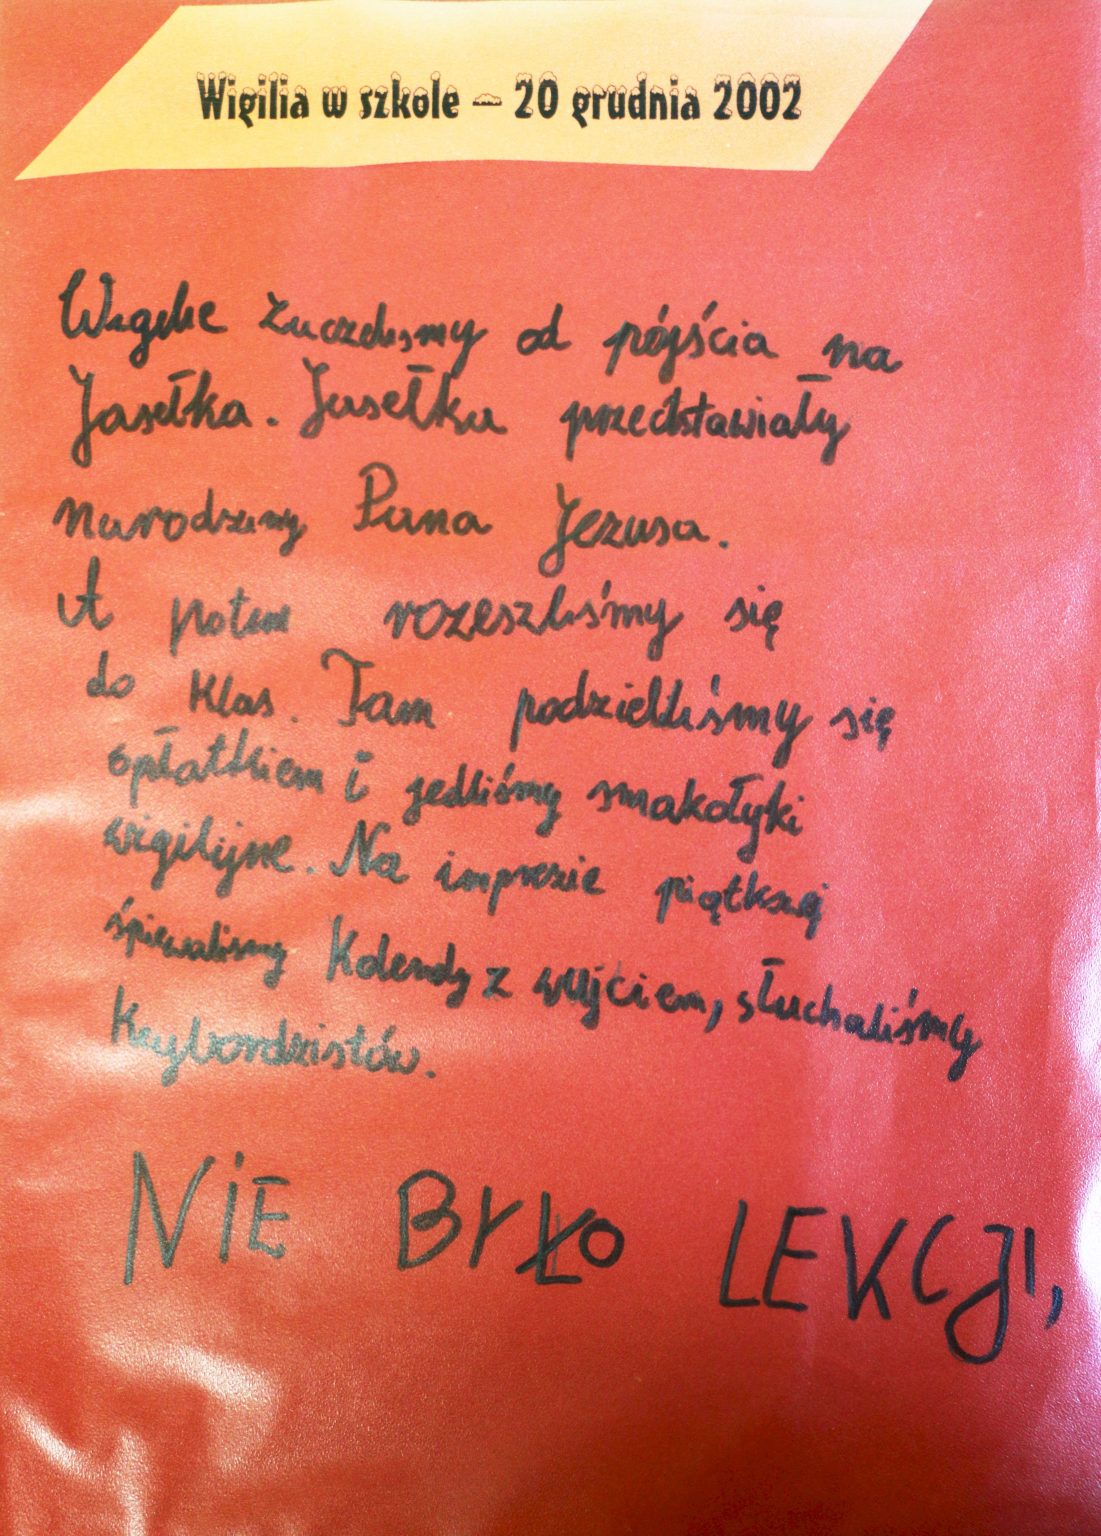 Wigilia w szkole – 20 grudnia 2002
Wigilie zaczelismy od pójścia na
Jasełka. Jasełka przedstawiały
narodziny Pana Jezusa.
A potem rozeszliśmy się
do klas. Tam podzieliliśmy się
opłatkiem i jedliśmy smakołyki
wigilijne. Na imprezie piątkowej
śpiewalismy Kolendy z wujciem, słuchaliśmy
Keybordzistów.
NiE BYŁO LEKCJI,